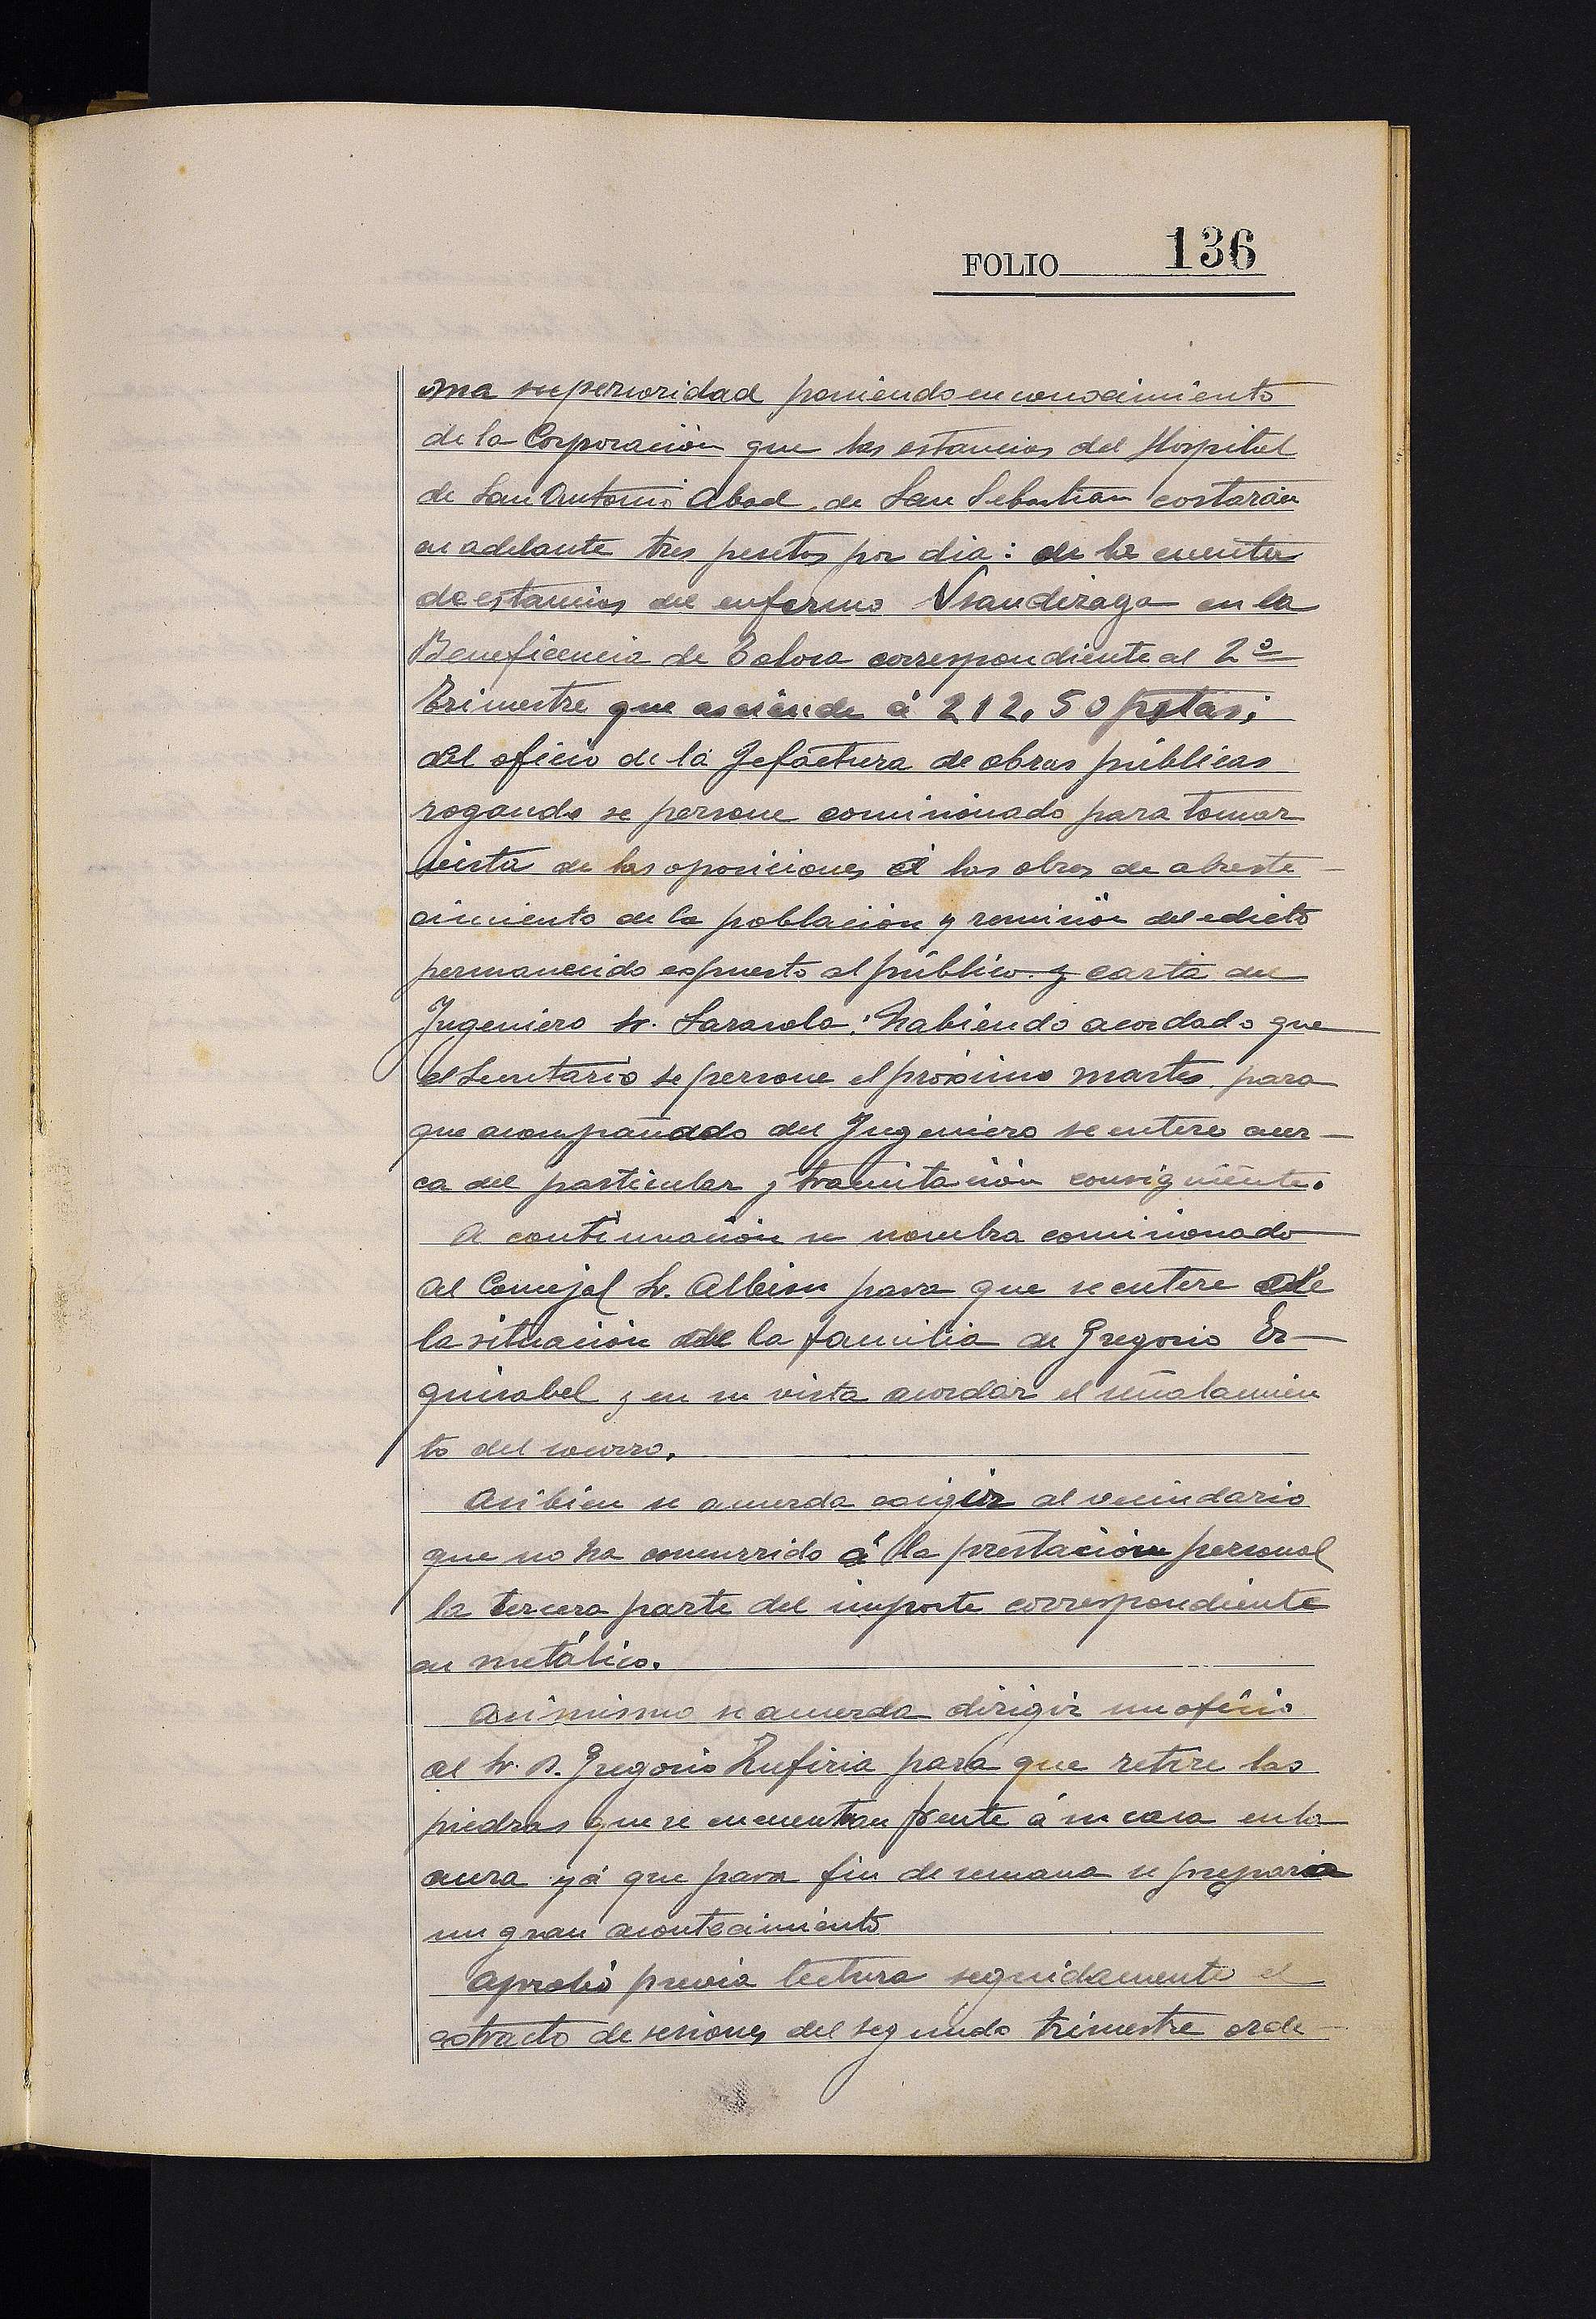 FOLIO 136
ma superioridad poniendo en conocimiento
de la Corporación que las estancias del Hospital
de San Antonio Abad de San Sebastian costarán
en adelante tres pesetas por dia: de la cuenta
de estancias del enfermo Usandizaga en la
Beneficencia de Tolosa correspondiente al 2º
Trimestre que asciende á 212,50 pstas;
del oficio de la Jefactura de obras públicas
rogando se persone comisionado para tomar
vista de las oposiciones á las obras de abaste
cimiento de la población y remisión del edicto
permanecido espuesto al público y carta del
Ingeniero Sr. Sarasola: habiendo acordado que
el Secretario se persone el próximo martes para
que acompañado del Ingeniero se entere acer-
ca del particular y tramitación consiguiente.
A continuación se nombra comisionado
al Concejal Sr. Albisu para que se entere de
la situación de la familia de Gregorio Es-
quisabel y en su vista acordar el señalamien
to del socorro.
Asibien se acuerda exigir al vecindario
que no ha concurrido á la prestación personal
la tercera parte del importe correspondiente
en metálico.
Asimismo se acuerda dirigir un oficio
al Sr. D. Gregorio Zufiria para que retire las
piedras que se encuentran frente á su casa en la
acera yá que para fin de semana se prepara
un gran acontecimiento
Aprobó previa lectura seguidamente el
extracto de sesiones del segundo trimestre orde-